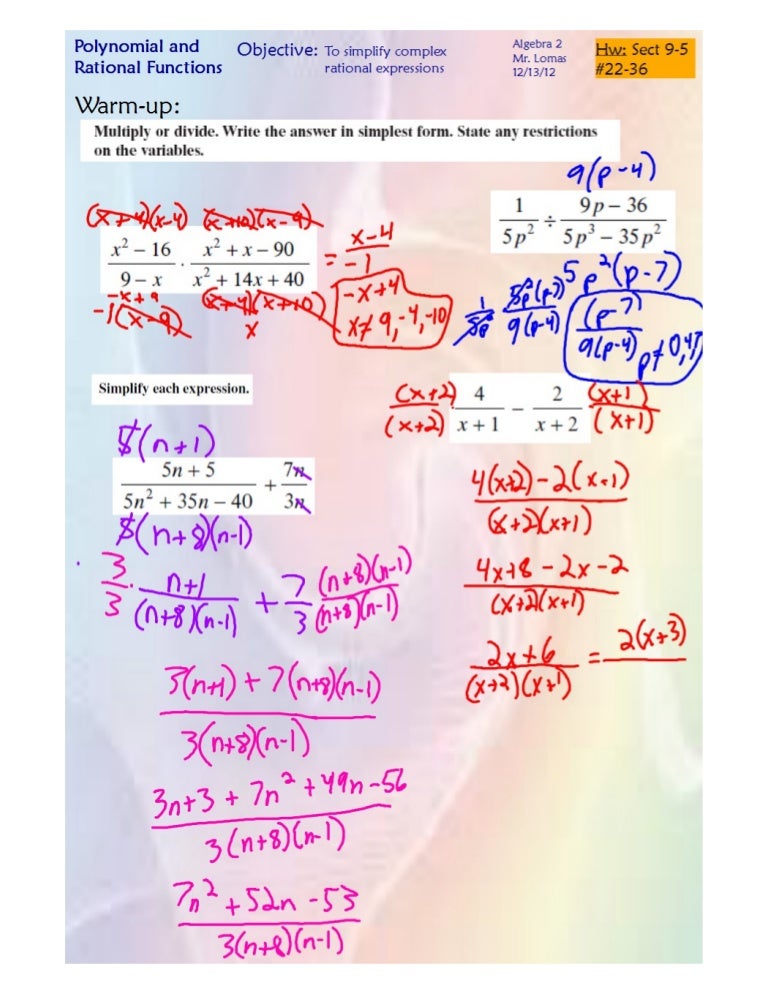 Polynomial and
Rational Functions
Objective: To simplify complex
rational expressions
Algebra 2
Mr. Lomas
12/13/12
Hw: Sect 9-5
#22-36
Warm-up:
Multiply or divide. Write the answer in simplest form. State any restrictions
on the variables.
(x+4)(x-4) (x+10)(x-9)
x² − 16 / 9 − x · x² + x − 90 / x² + 14x + 40 = x-4 / -1
-x+9
-1(x-9) (x+4)(x+10)
x
-x+4
x≠9,-4,-10
9(p-4)
1 / 5p² ÷ 9p − 36 / 5p³ − 35p²
5p²(p-7)
1 / 5p² 5p²(p-7) / 9(p-4)
(p-7) / 9(p-4) p≠0,4,7
Simplify each expression.
5(n+1)
5n + 5 / 5n² + 35n − 40 + 7n / 3n
5(n+8)(n-1)
3/3 · n+1 / (n+8)(n-1) + 7/3 (n+8)(n-1) / (n+8)(n-1)
3(n+1) + 7(n+8)(n-1) / 3(n+8)(n-1)
3n+3 + 7n² + 49n - 56 / 3(n+8)(n-1)
7n² + 52n - 53 / 3(n+8)(n-1)
(x+2) / (x+2) 4 / x + 1 − 2 / x + 2 (x+1) / (x+1)
4(x+2) - 2(x+1) / (x+2)(x+1)
4x+8 - 2x - 2 / (x+2)(x+1)
2x+6 / (x+2)(x+1) = 2(x+3)